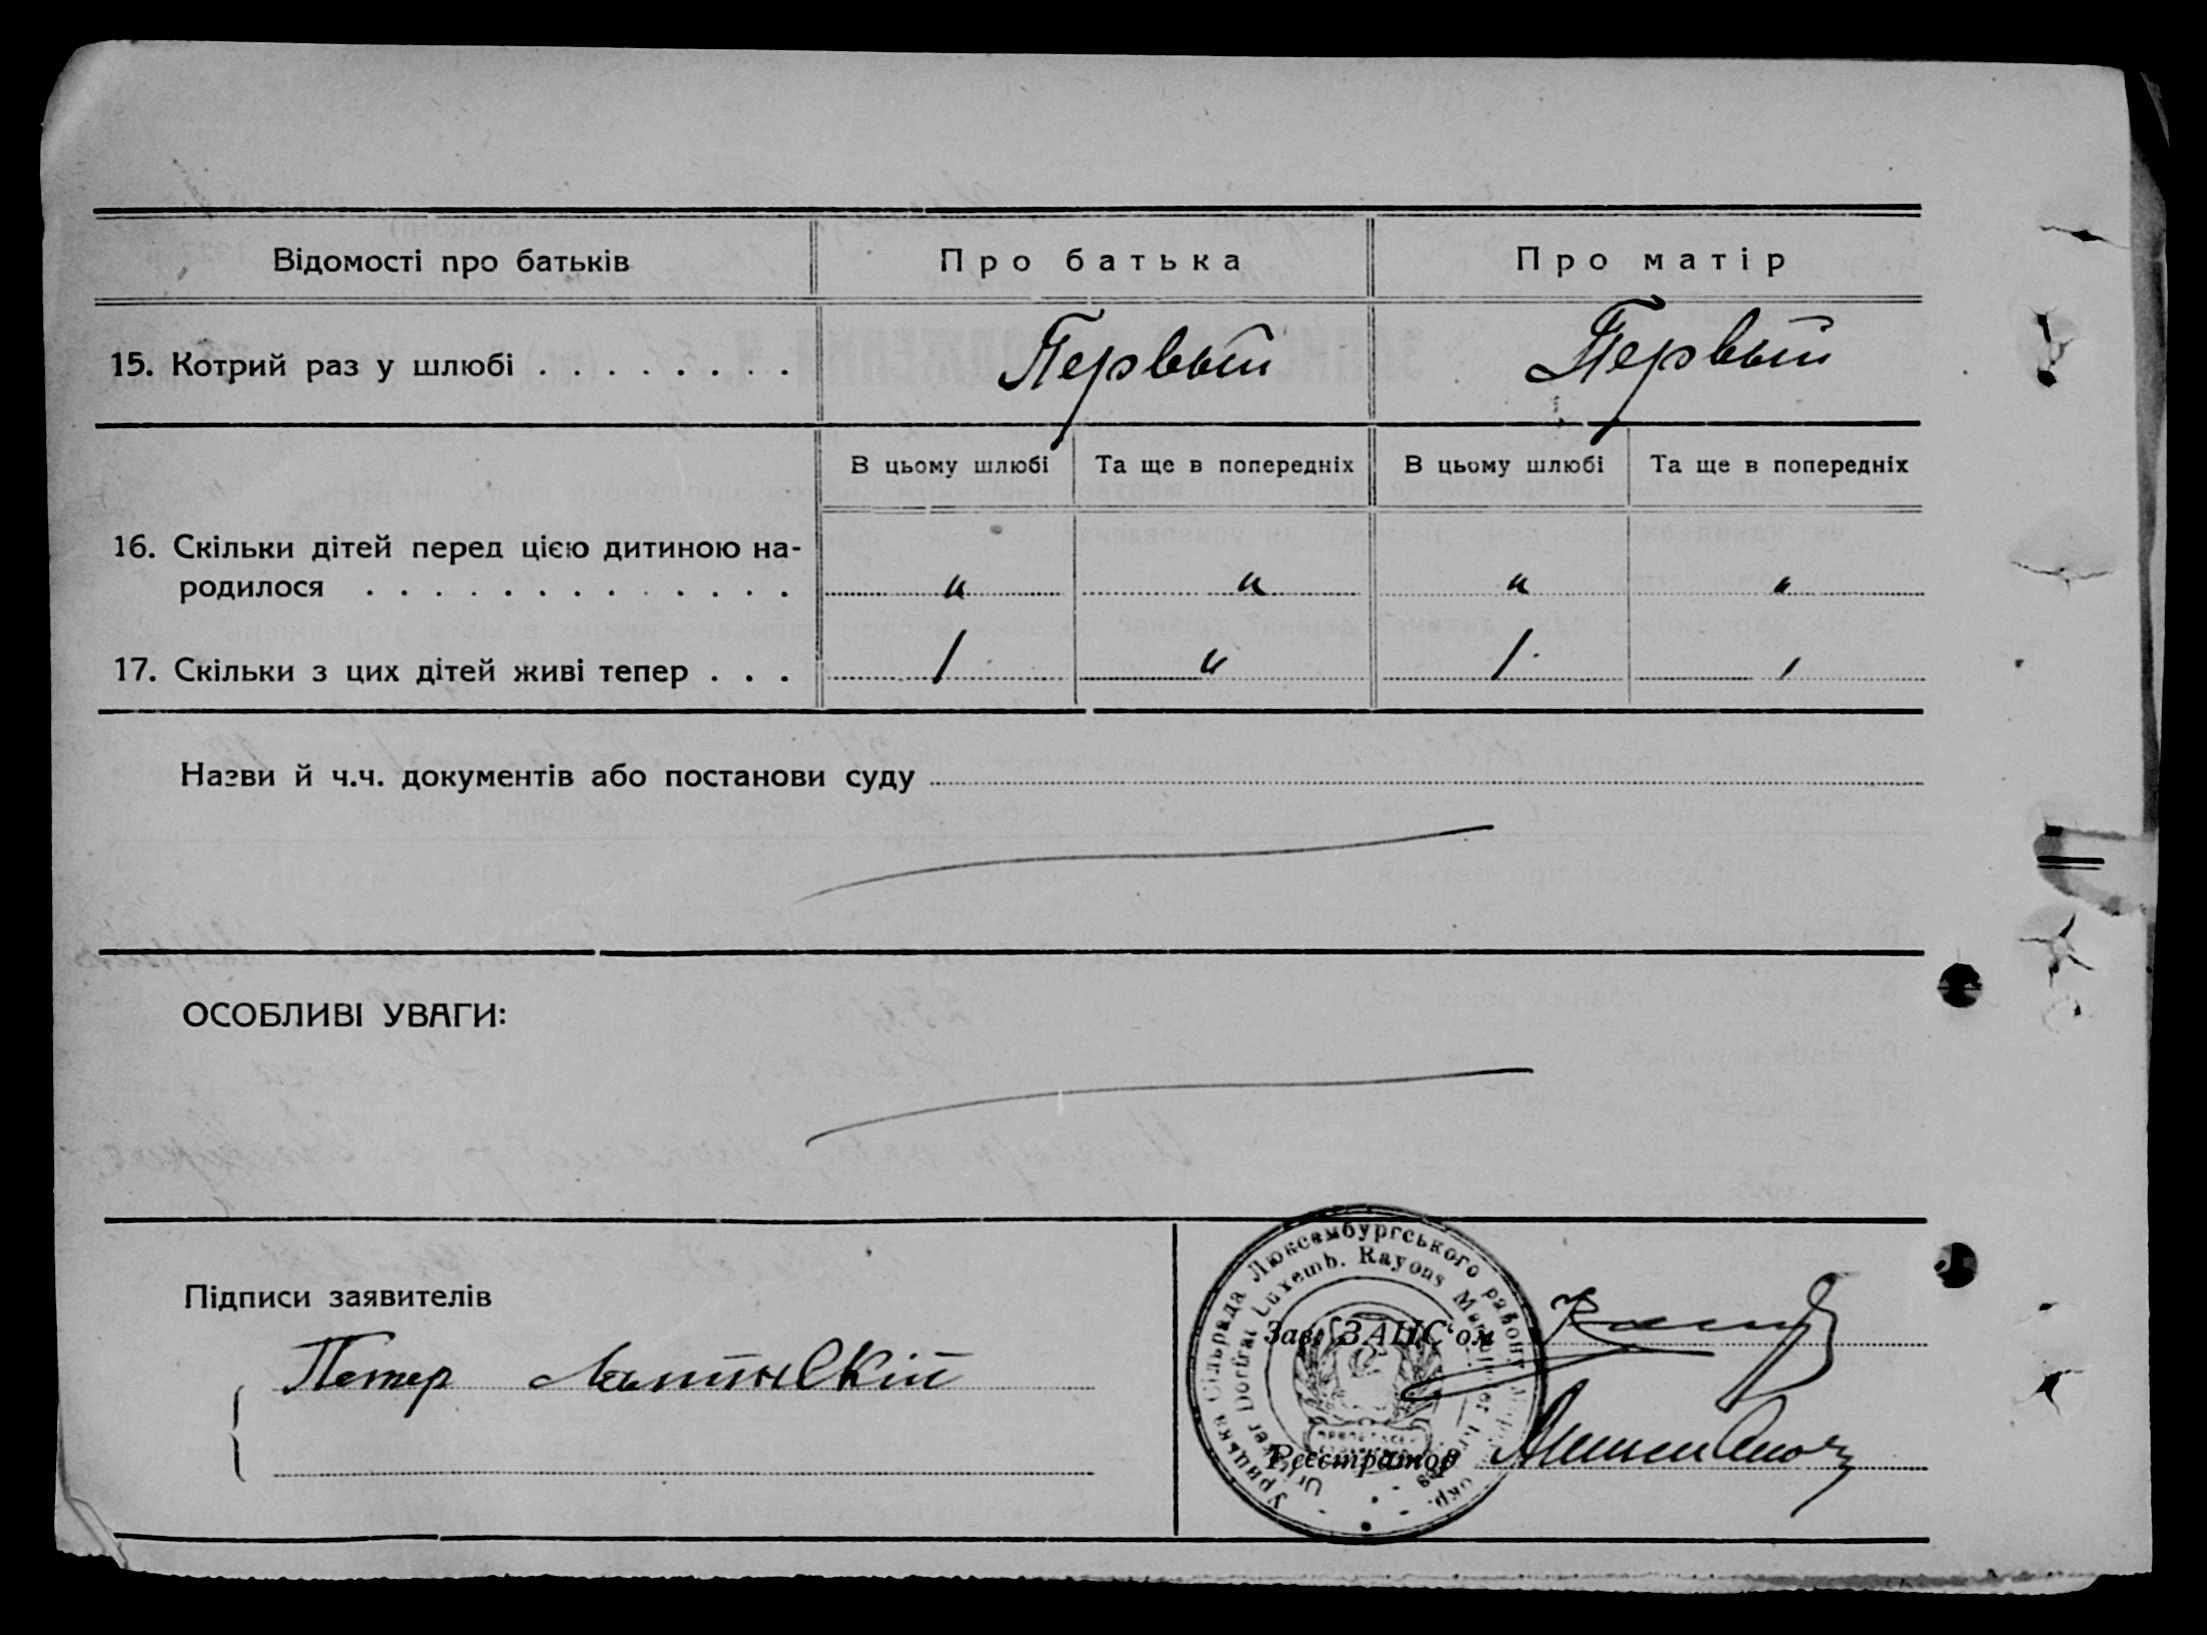 Відомості про батьків
Про батька
Про матір
15. Котрий раз у шлюбі . . . . . . . .
Первый
Первый
В цьому шлюбі
Та ще в попередніх
В цьому шлюбі
Та ще в попередніх
16. Скільки дітей перед цією дитиною на-
родилося . . . . . . . . . . . . .
"
"
"
"
17. Скільки з цих дітей живі тепер . . .
/
"
/
Назви й ч.ч. документів або постанови суду
ОСОБЛИВІ УВАГИ:
Підписи заявителів
Петер
Зав. ЗАПС'ом
Реєстратор
Урицька Сільрада Люксембургського району окр.
Luxemb. Rayons